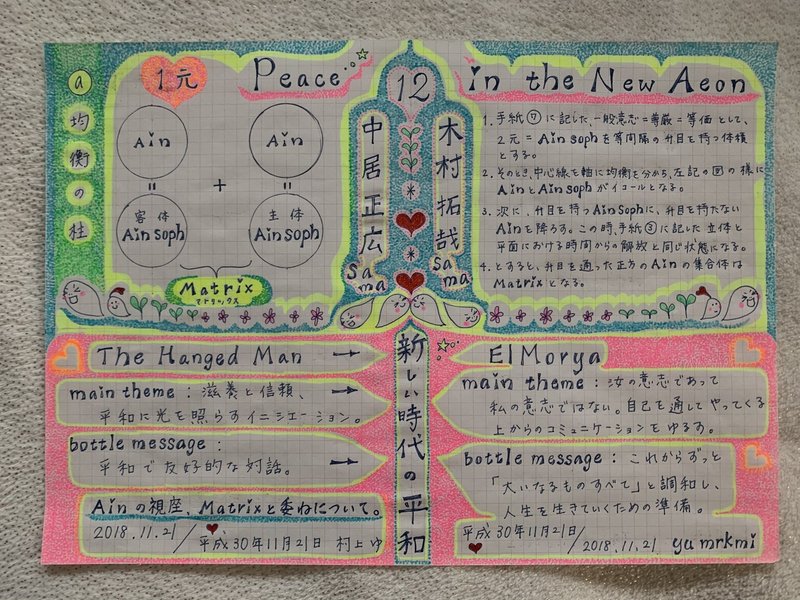 1元 Peace
12
in the New Aeon
a
均衡の柱
Ain
Ain
=
=
+
客体
Ain soph
主体
Ain soph
Matrix
マトリックス
中居正広
sama
木村拓哉
sama
1. 手紙⑰に記した、一般意志=尊厳=等価として、
2元=Ain sophを等間隔の升目を持つ体積
とする。
2. そのとき、中心線を軸に均衡を分かち、左記の図の様に
AinとAin sophがイコールとなる。
3. 次に、升目を持つAin sophに、升目を持たない
Ainを降ろす。この時、手紙③に記した立体と
平面における時間からの解放と同じ状態になる。
4. とすると、升目を通った正方のAinの集合体は
Matrixとなる。
新しい時代の平和
The Hanged Man →
main theme : 滋養と信頼、 →
平和に光を照らすイニシエーション。
bottle message :
平和で友好的な対話。 →
Ainの視座、Matrixと委ねについて。
2018.11.21/平成30年11月21日 村上ゆ
El Morya
main theme : 汝の意志であって
私の意志ではない。自己を通してやってくる
上からのコミュニケーションをゆるす。
bottle message : これからずっと
「大いなるものすべて」と調和し、
人生を生きていくための準備。
平成30年11月21日/2018.11.21 yu mrkmi